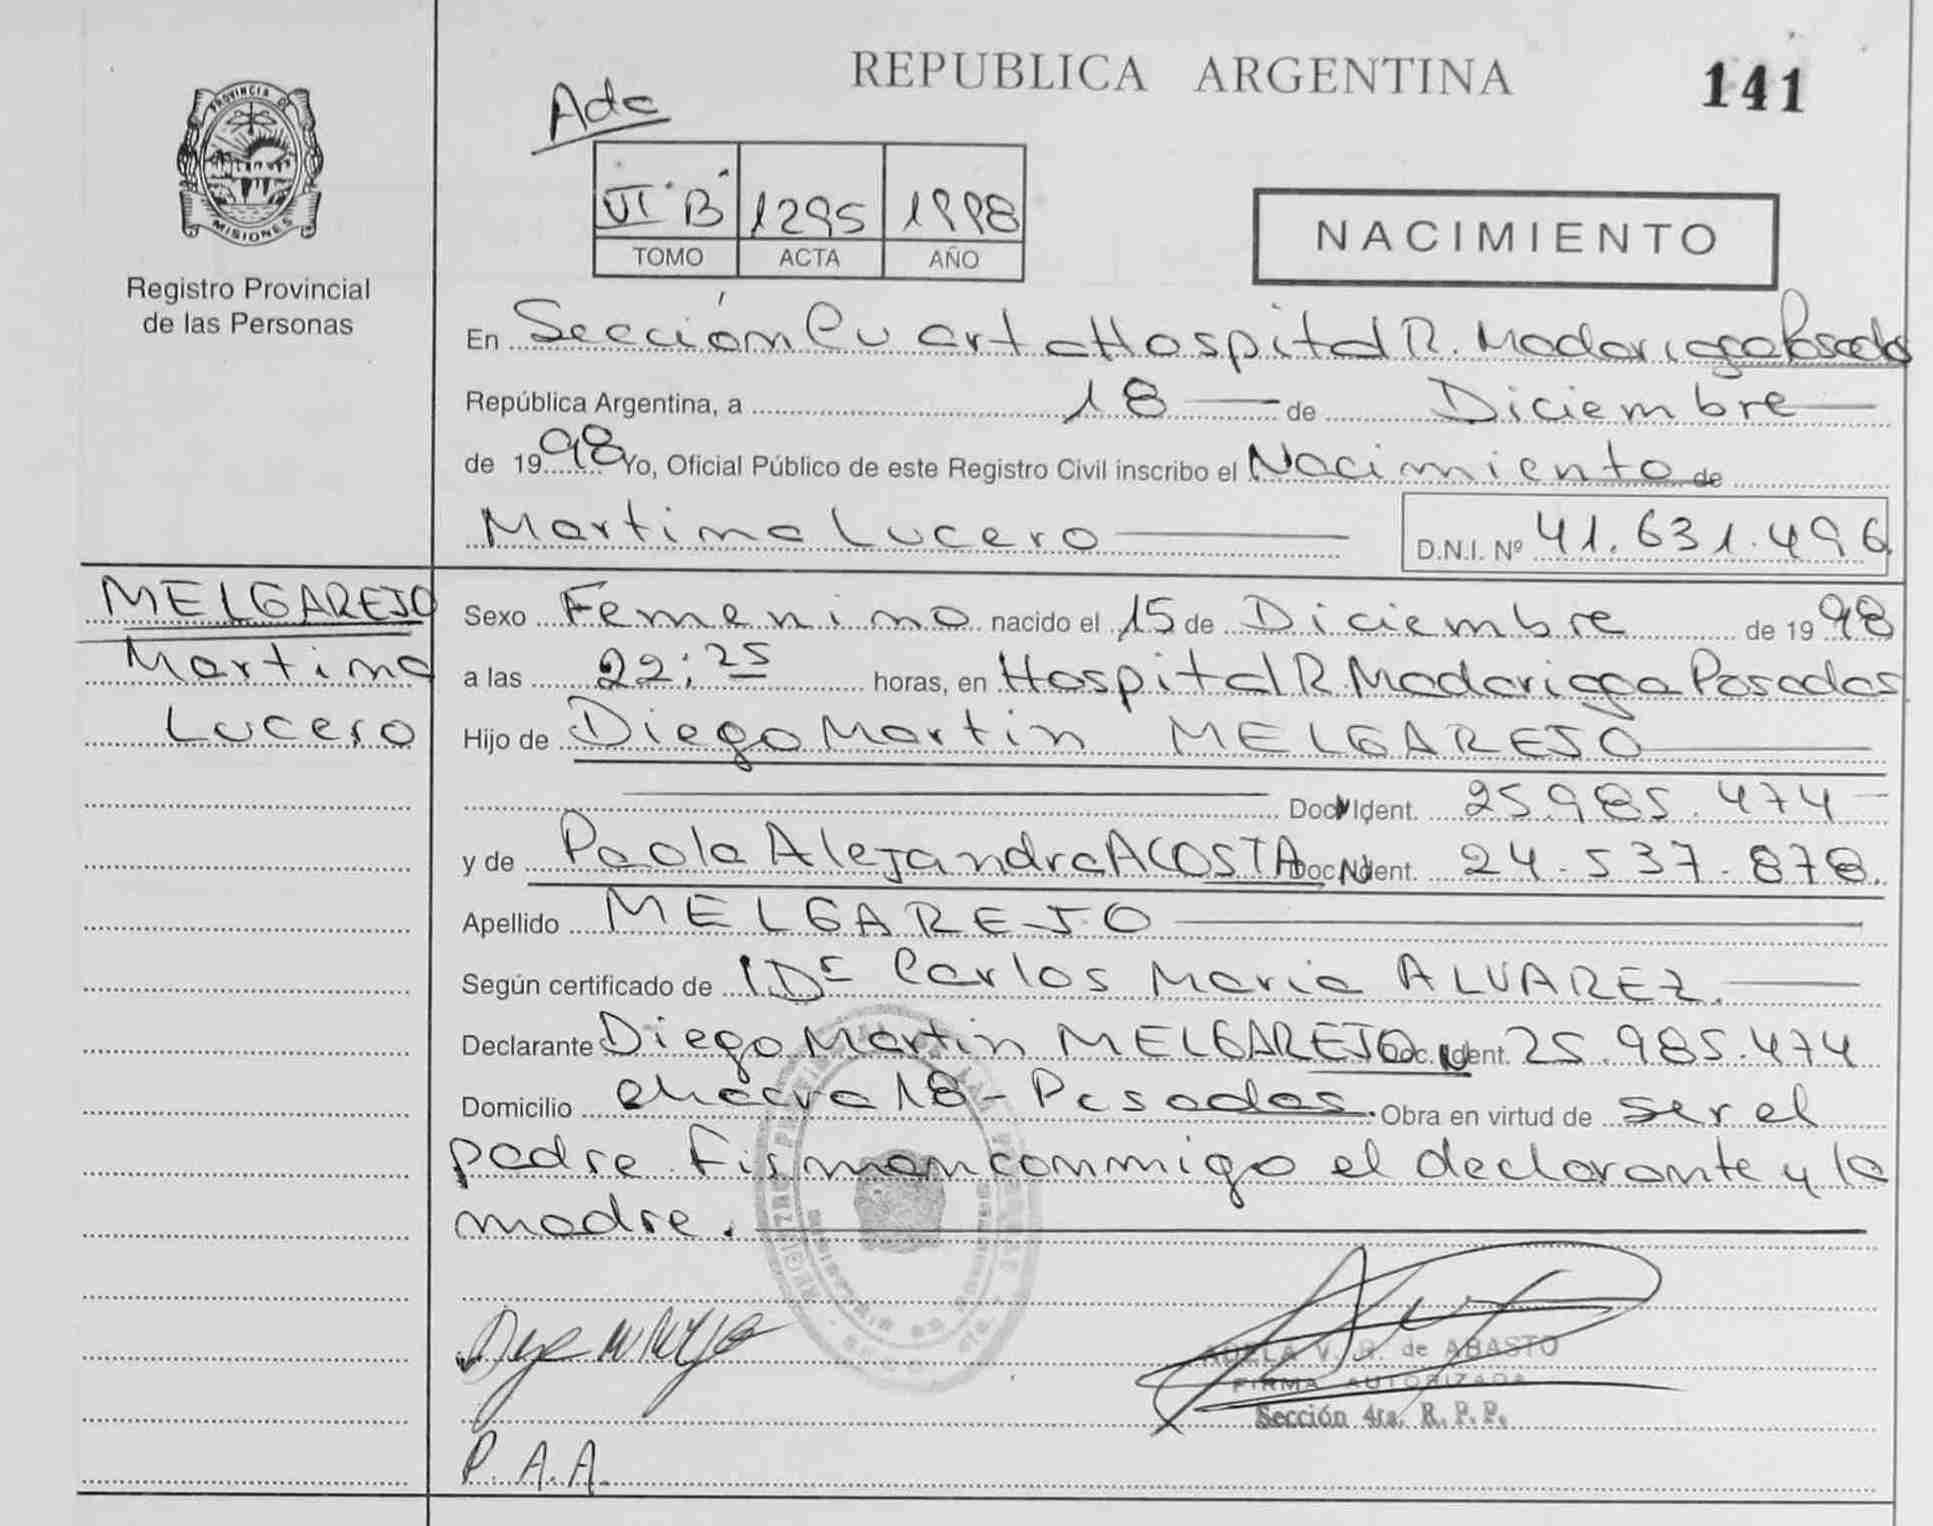 REPUBLICA ARGENTINA
141
PROVINCIA DE
MISIONES
Registro Provincial
de las Personas
Adc
VI "B" 1295 1998
TOMO ACTA AÑO
NACIMIENTO
En Sección Cuarta Hospital R. Madariaga Posadas
República Argentina, a 18 de Diciembre
de 1998 Yo, Oficial Público de este Registro Civil inscribo el Nacimiento de
Martina Lucero D.N.I. Nº 41.631.496
MELGAREJO
Martina
Lucero
Sexo Femenino nacido el 15 de Diciembre de 1998
a las 22:25 horas, en Hospital R Madariaga Posadas
Hijo de Diego Martin MELGAREJO
Doc. Ident. 25.985.474
y de Paola Alejandra ACOSTA Doc. Ident. 24.537.878.
Apellido MELGAREJO
Según certificado de Dr Carlos Maria ALVAREZ.
Declarante Diego Martin MELGAREJO Doc. Ident. 25.985.474
Domicilio chacra 18 - Posadas. Obra en virtud de ser el
padre. Firman conmigo el declarante y la
madre.
V. R. de ABASTO
FIRMA AUTORIZADA
Sección 4ta. R. P. P.
P. A. A.